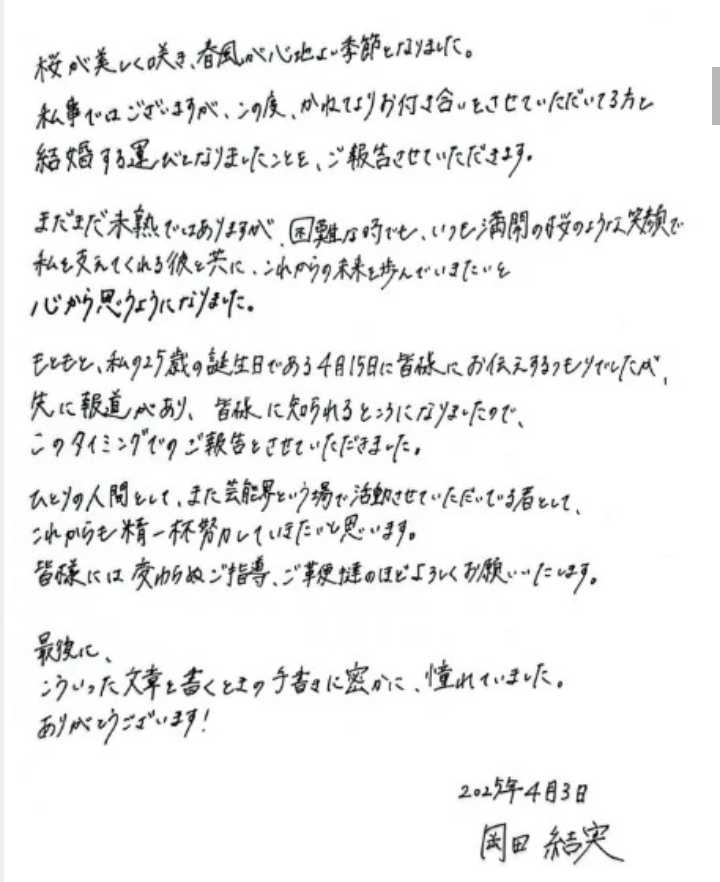 桜が美しく咲き、春風が心地よい季節となりました。
私事ではございますが、この度、かねてよりお付き合いをさせていただいてる方と
結婚する運びとなりましたことを、ご報告させていただきます。
まだまだ未熟ではありますが、困難な時でも、いつも満開の桜のような笑顔で
私を支えてくれる彼と共に、これからの未来を歩んでいきたいと
心から思うようになりました。
もともと、私の25歳の誕生日である4月15日に皆様にお伝えするつもりでしたが、
先に報道があり、皆様に知られるところになりましたので、
このタイミングでのご報告とさせていただきました。
ひとりの人間として、また芸能界という場で活動させていただいている者として、
これからも精一杯努力していきたいと思います。
皆様には変わらぬご指導、ご鞭撻のほどよろしくお願いいたします。
最後に、
こういった文章を書くときの手書きに密かに、憧れていました。
ありがとうございます!
2025年4月3日
岡田 結実